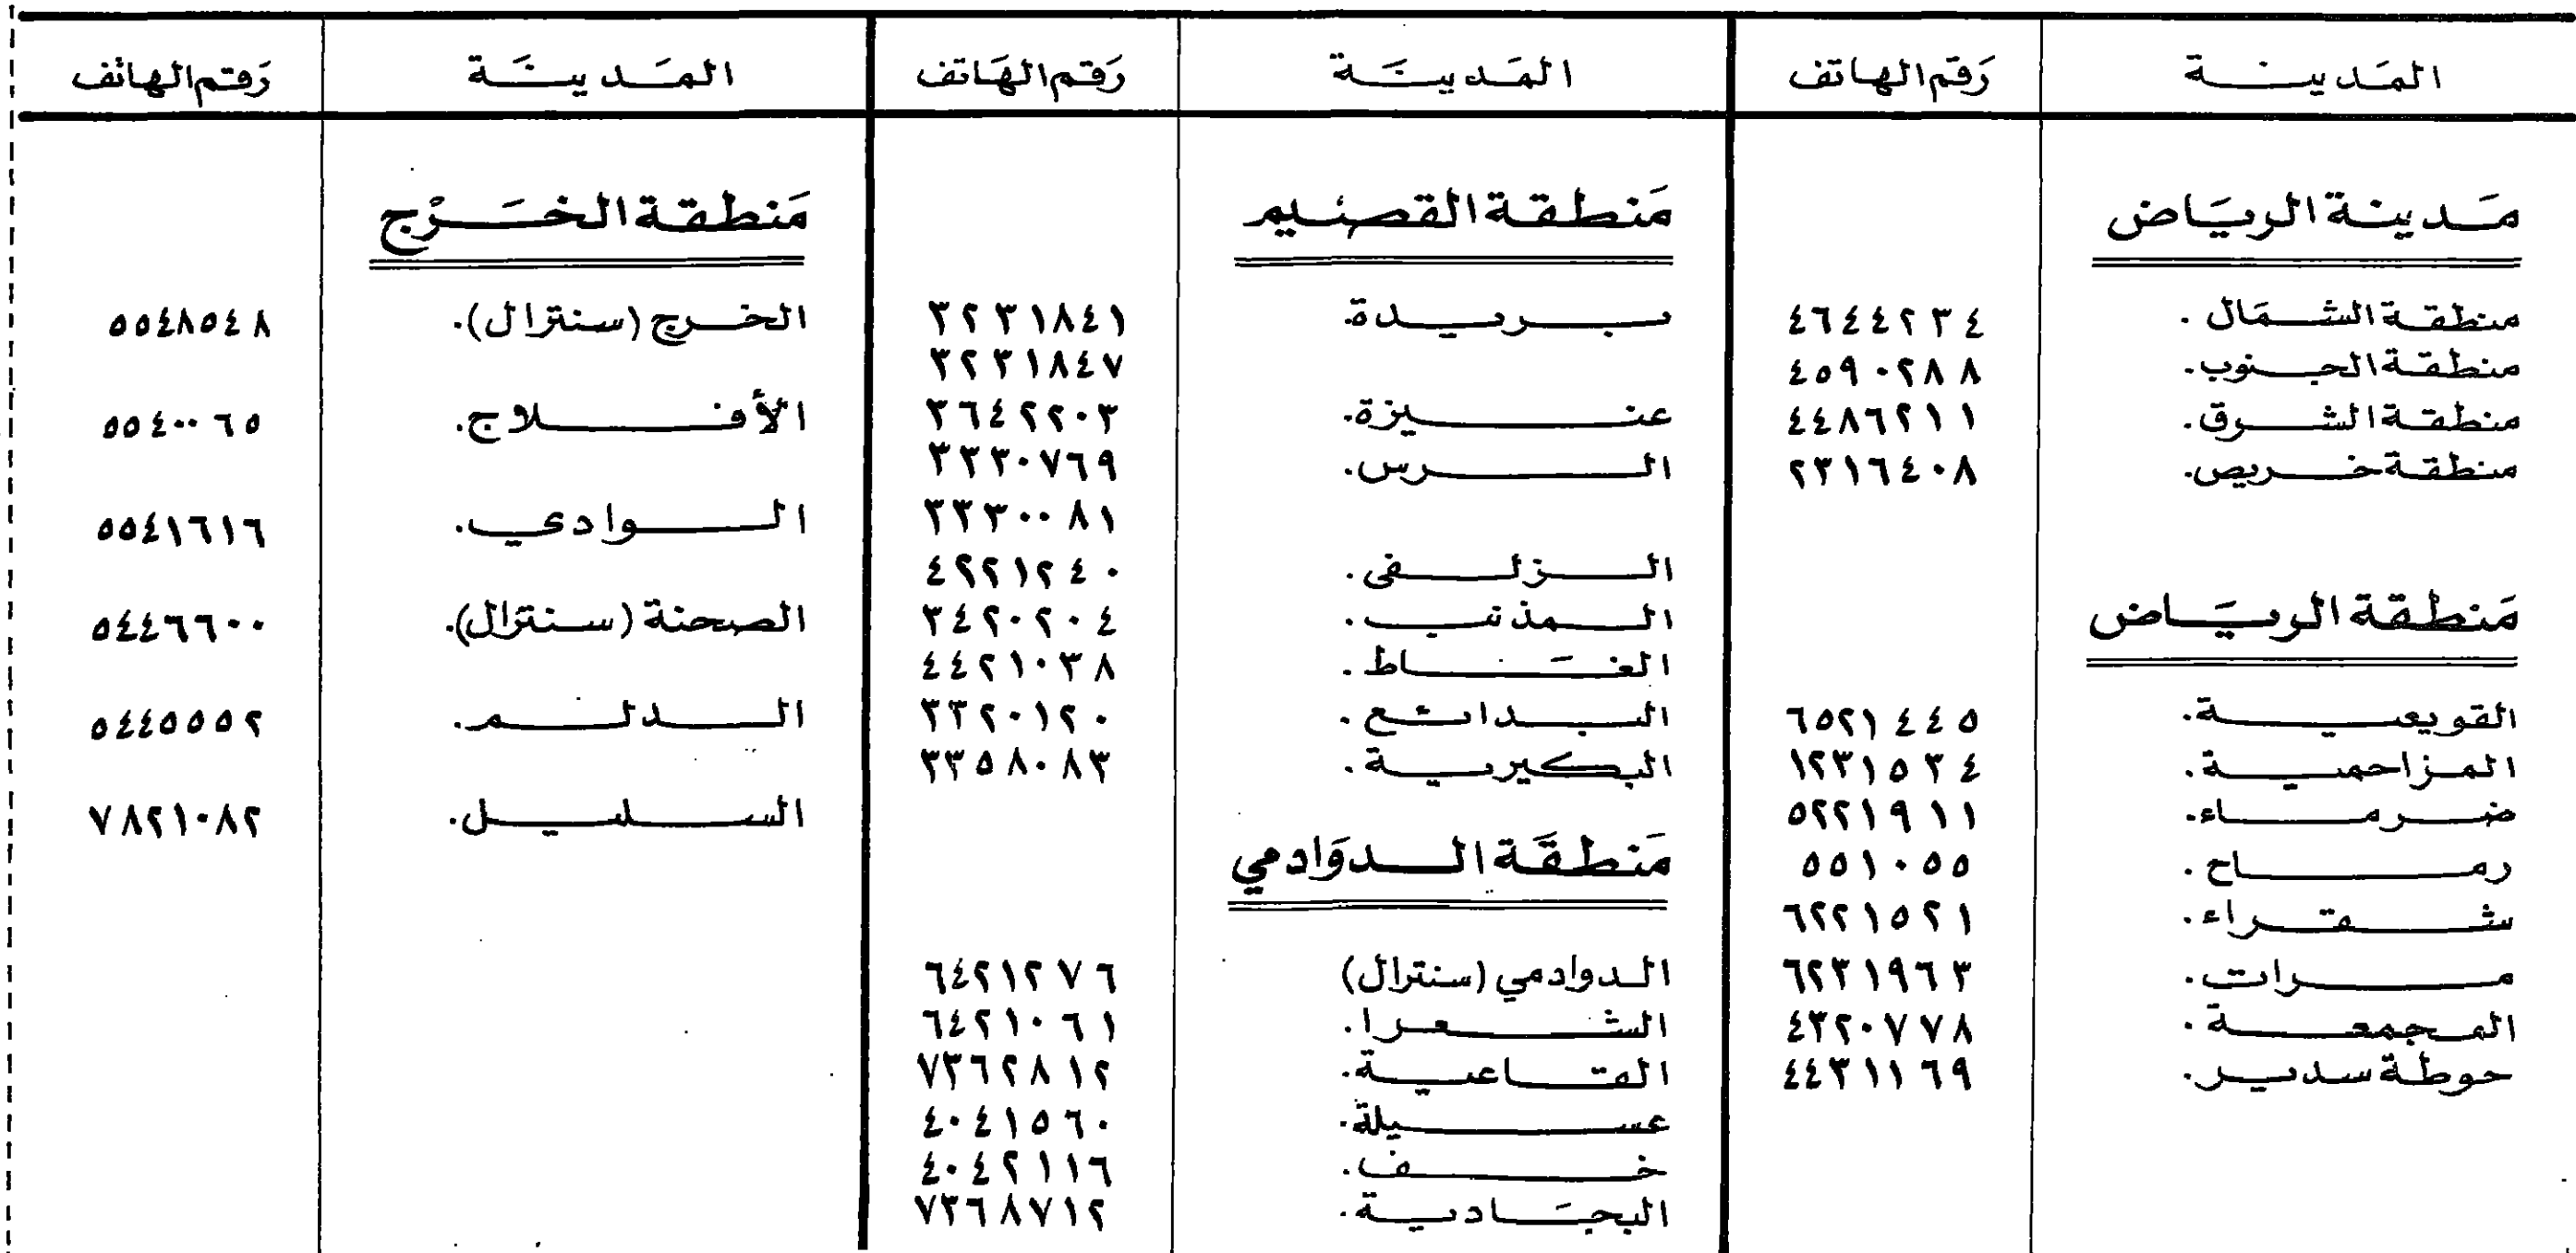 المدينة رقم الهاتف
مدينة الرياض
منطقة الشمال. ٤٦٤٤٢٣٤
منطقة الجنوب. ٤٥٩٠٢٨٨
منطقة الشرق. ٤٤٨٦٢١١
منطقة خريص. ٢٣١٦٤٠٨
منطقة الرياض
القويعية. ٦٥٢١٤٤٥
المزاحمية. ١٢٣١٥٣٤
ضرماء. ٥٢٢١٩١١
رماح. ٥٥١٠٥٥
شقراء. ٦٢٢١٥٢١
مرات. ٦٢٣١٩٦٣
المجمعة. ٤٣٢٠٧٧٨
حوطة سدير. ٤٤٣١١٦٩
المدينة رقم الهاتف
منطقة القصيم
بريدة. ٣٢٣١٨٤١
٣٢٣١٨٤٧
عنيزة. ٣٦٤٢٢٠٣
الرس. ٣٣٣٠٧٦٩
٣٣٣٠٠٨١
الزلفى. ٤٢٢١٢٤٠
المذنب. ٣٤٢٠٢٠٤
الغاط. ٤٤٢١٠٣٨
البدائع. ٣٣٢٠١٢٠
البكيرية. ٣٣٥٨٠٨٣
منطقة الدوادمي
الدوادمي (سنترال) ٦٤٢١٢٧٦
الشعرا. ٦٤٢١٠٦١
القاعية. ٧٣٦٢٨١٢
عسيلة. ٤٠٤١٥٦٠
خف. ٤٠٤٢١١٦
البجادية. ٧٣٦٨٧١٢
المدينة رقم الهاتف
منطقة الخرج
الخرج (سنترال). ٥٥٤٨٥٤٨
الأفلاج. ٥٥٤٠٠٦٥
الوادي. ٥٥٤١٦١٦
الصحنة (سنترال). ٥٤٤٦٦٠٠
الدلم. ٥٤٤٥٥٥٢
السليل. ٧٨٢١٠٨٢